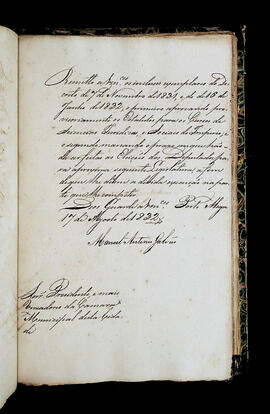 Remetto a Vm.ces os inclusos exemplares do De
creto de 7 de Novembro de 1831, e de 18 de
Junho de 1832, o primeiro aprovando pro
visoriamente os Estatutos para os Cursos de
Sciencias Juridicas, e Sociaes do Imperio, e
o segundo marcando a época, em que deverão
ser feitas as Eleições dos Deputados pa
ra a proxima seguinte Legislatura; a fim
de que lhe deem a devida execução na par
te que lhe compete.
Deos Guarde a Vm.ces Porto Alegre
17 de Agosto de 1832
Manoel Antonio Galvão
Snr.es Presidente, e mais
Vereadores da Camara
Municipal desta Cida
de